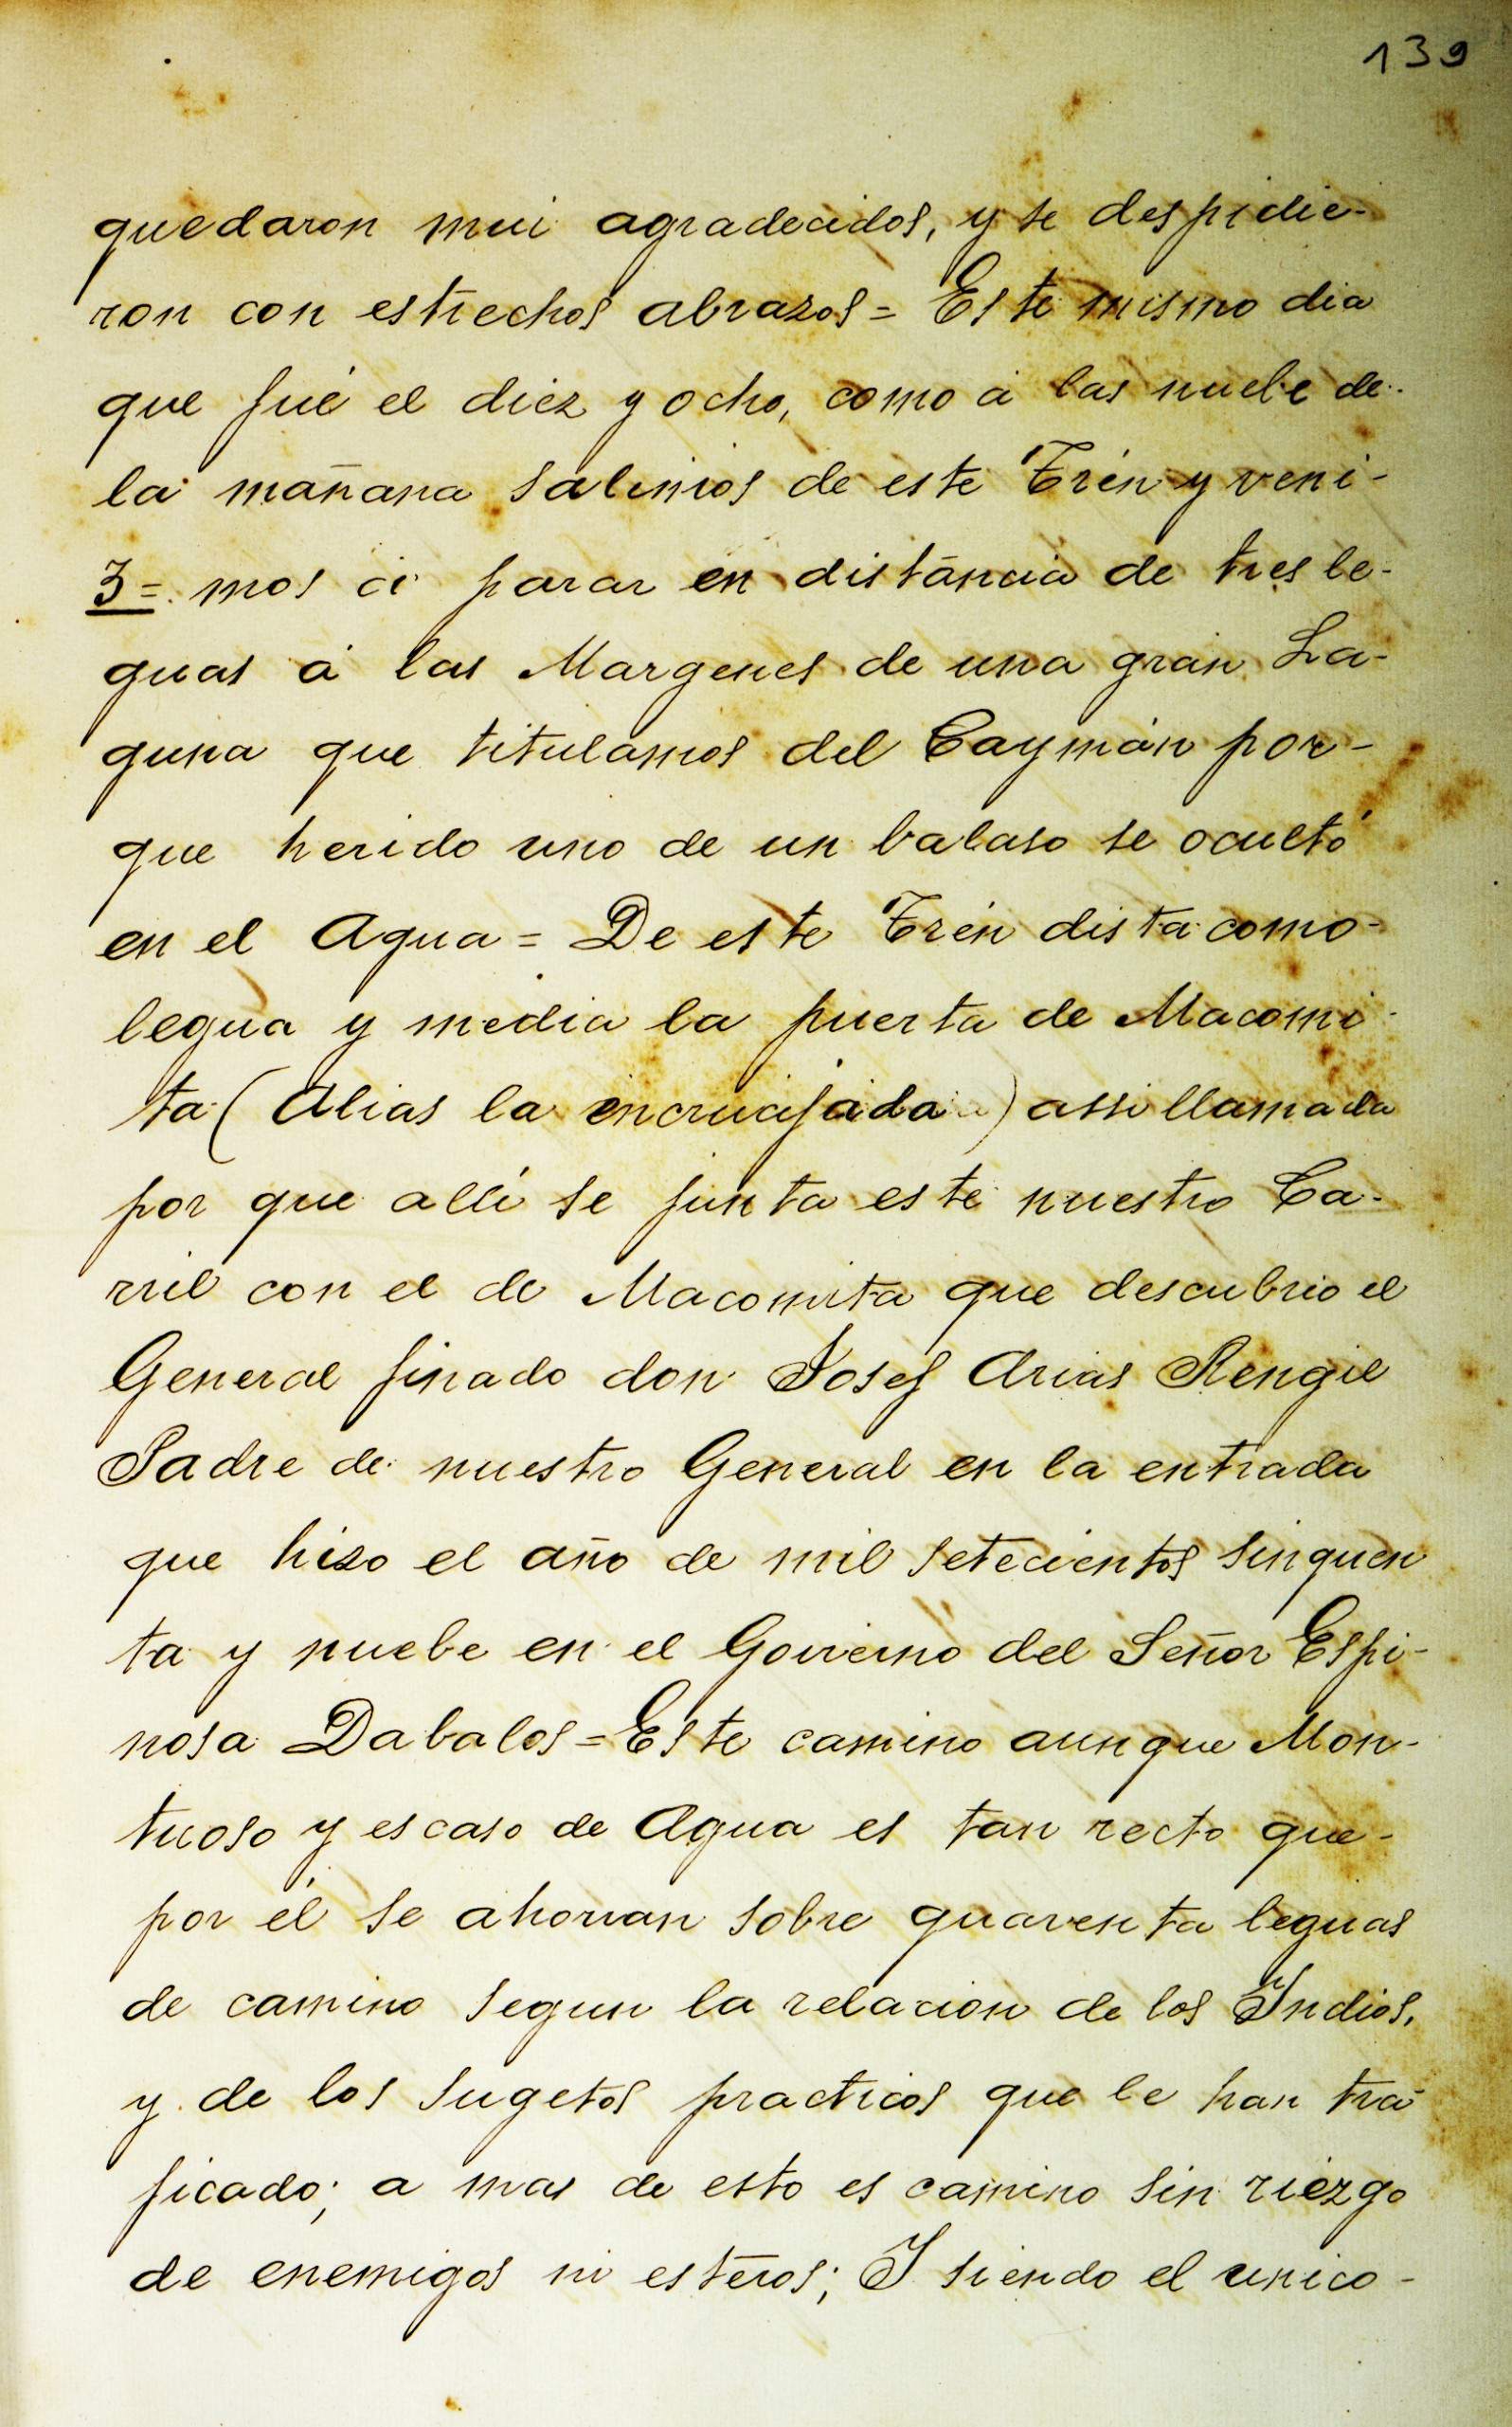 139
quedaron mui agradecidos, y se despidie-
ron con estrechos abrazos = Este mismo dia
que fué el diez y ocho, como á las nuebe de-
la mañana salimos de este Trén y veni-
3 = mos á parar en distáncia de tres le-
guas á las Margenes de una gran La-
guna que titulamos del Caymán por-
que herido uno de un balaso se ocultó
en el Agua = De este Trén dista como-
legua y media la puerta de Macomi-
ta (Alias la encrucijada) assi llamada
por que allí se junta este nuestro Ca-
rril con el de Macomita que descubrio el
General finado don Josef Arias Rengel
Padre de nuestro General en la entrada
que hizo el año de mil setecientos sinquen
ta y nuebe en el Govierno del Señor Espi-
nosa Dabalos = Este camino aunque Mon-
tuoso y escaso de Agua es tan recto que-
por él se ahorran sobre quarenta leguas
de camino segun la relacion de los Indios,
y de los sugetos practicos que le han tra-
ficado; a mas de esto es camino sin riezgo
de enemigos ni esteros; I siendo el unico-